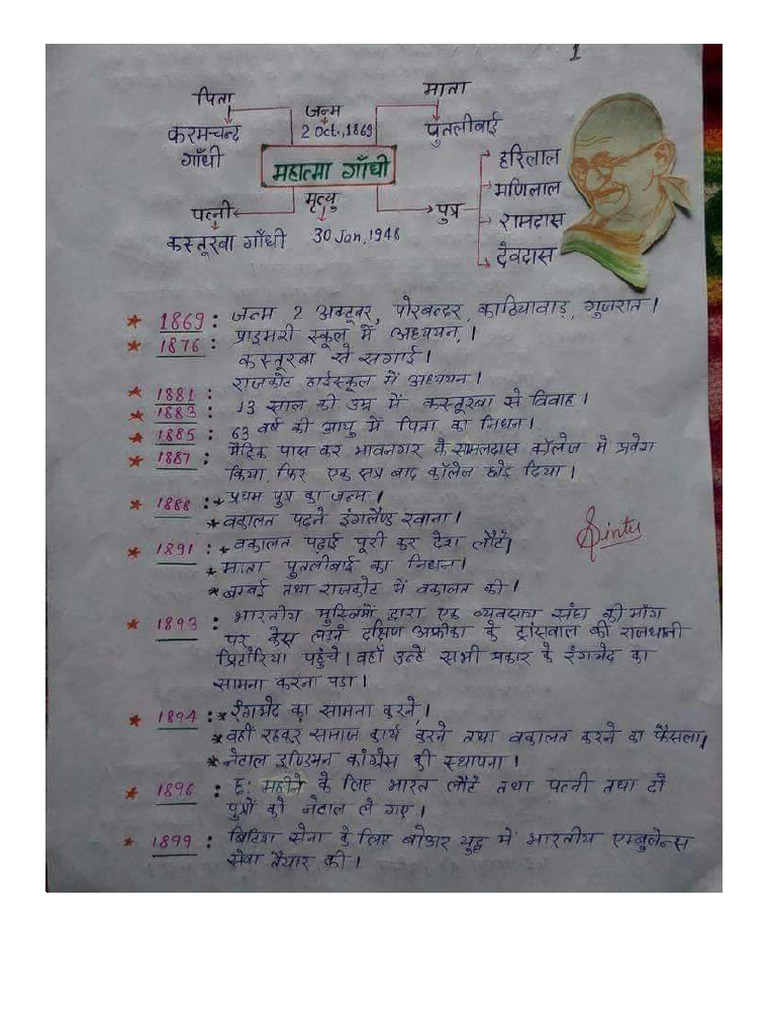 1
पिता
माता
जन्म
करमचन्द गाँधी
2 Oct.,1869
पुतलीबाई
महात्मा गाँधी
पत्नी
मृत्यु
पुत्र
कस्तूरबा गाँधी
30 Jan,1948
हरिलाल
मणिलाल
रामदास
देवदास
* 1869 : जन्म 2 अक्टूबर, पोरबन्दर, काठियावाड़, गुजरात।
* 1876 : प्राइमरी स्कूल में अध्ययन,।
कस्तूरबा से सगाई।
* 1881 : राजकोट हाईस्कूल में अध्ययन।
* 1883 : 13 साल की उम्र में कस्तूरबा से विवाह।
* 1885 : 63 वर्ष की आयु में पिता का निधन।
* 1887 : मैट्रिक पास कर भावनगर के सामलदास कॉलेज में प्रवेश
किया, फिर एक सत्र बाद कॉलेज छोड़ दिया।
* 1888 : * प्रथम पुत्र का जन्म।
* वकालत पढ़ने इंगलैण्ड रवाना।
Sintu
* 1891 : * वकालत पढ़ाई पूरी कर देश लौटे।
* माता पुतलीबाई का निधन।
* बम्बई तथा राजकोट में वकालत की।
* 1893 : भारतीय मुस्लिमों द्वारा एक व्यवसाय संघ की मांग
पर केस लड़ने दक्षिण अफ्रीका के ट्रांसवाल की राजधानी
प्रिटोरिया पहुंचे। वहाँ उन्हें सभी प्रकार के रंगभेद का
सामना करना पड़ा।
* 1894 : * रंगभेद का सामना करने,।
* वहीं रहकर समाज कार्य करने तथा वकालत करने का फैसला।
* नेटाल इण्डियन कांग्रेस की स्थापना।
* 1896 : छ: महीने के लिए भारत लौटे तथा पत्नी तथा दो
पुत्रों को नेटाल ले गए।
* 1899 : ब्रिटिश सेना के लिए बोअर युद्ध में भारतीय एम्बुलेन्स
सेवा तैयार की।